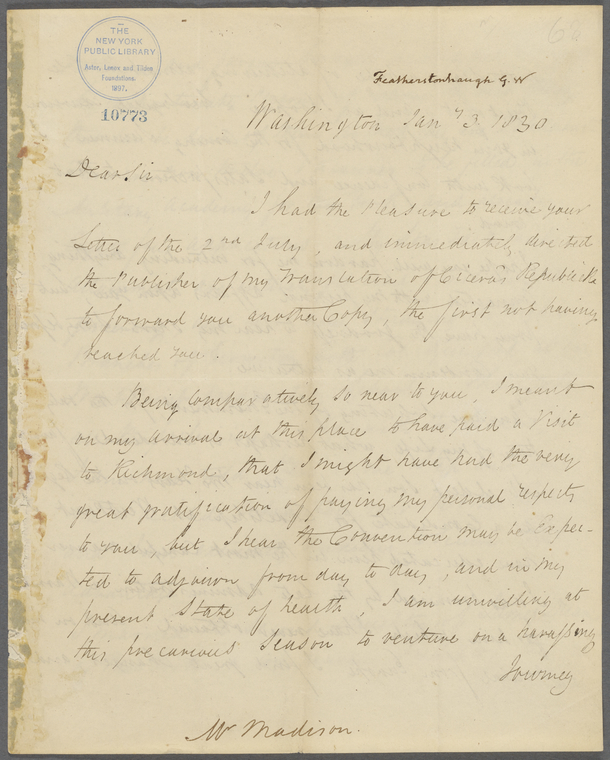 THE
NEW YORK
PUBLIC LIBRARY
Astor, Lenox and Tilden
Foundations.
1897.
10773
Featherstonhaugh G. W
Washington Jany 3. 1830.
Dear Sir
I had the Pleasure to receive your
Letter of the 2nd July, and immediately directed
the Publisher of my Translation of Cicero's Republic
to forward you another Copy, the first not having
reached you.
Being comparatively so near to you, I meant
on my arrival at this place to have paid a Visit
to Richmond, that I might have had the very
great gratification of paying my personal respects
to you but I hear the Convention may be expec-
ted to adjourn from day to day, and in my
present State of health, I am unwilling at
this precarious Season to venture on a harassing
Journey
Mr Madison.